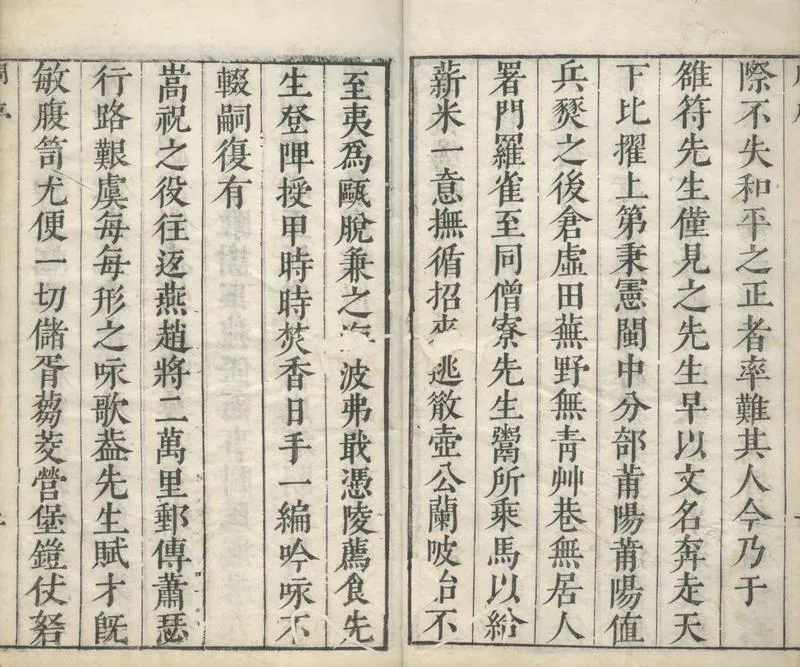 際不失和平之正者率難其人今乃于
雒符先生僅見之先生早以文名奔走天
下比擢上第秉憲閩中分部莆陽莆陽值
兵燹之後倉虛田蕪野無青艸巷無居人
署門羅雀至同僧寮先生鬻所乘馬以給
薪米一意撫循招來逃散壺公蘭陂台不
至夷爲甌脫兼之海波弗戢憑陵薦食先
生登陴授甲時時焚香日手一編吟咏不
輟嗣復有
嵩祝之役往返燕趙將二萬里郵傳蕭瑟
行路艱虞每每形之咏歌葢先生賦才旣
敏腹笥尤便一切儲胥蒭茭營堡鎧仗弩